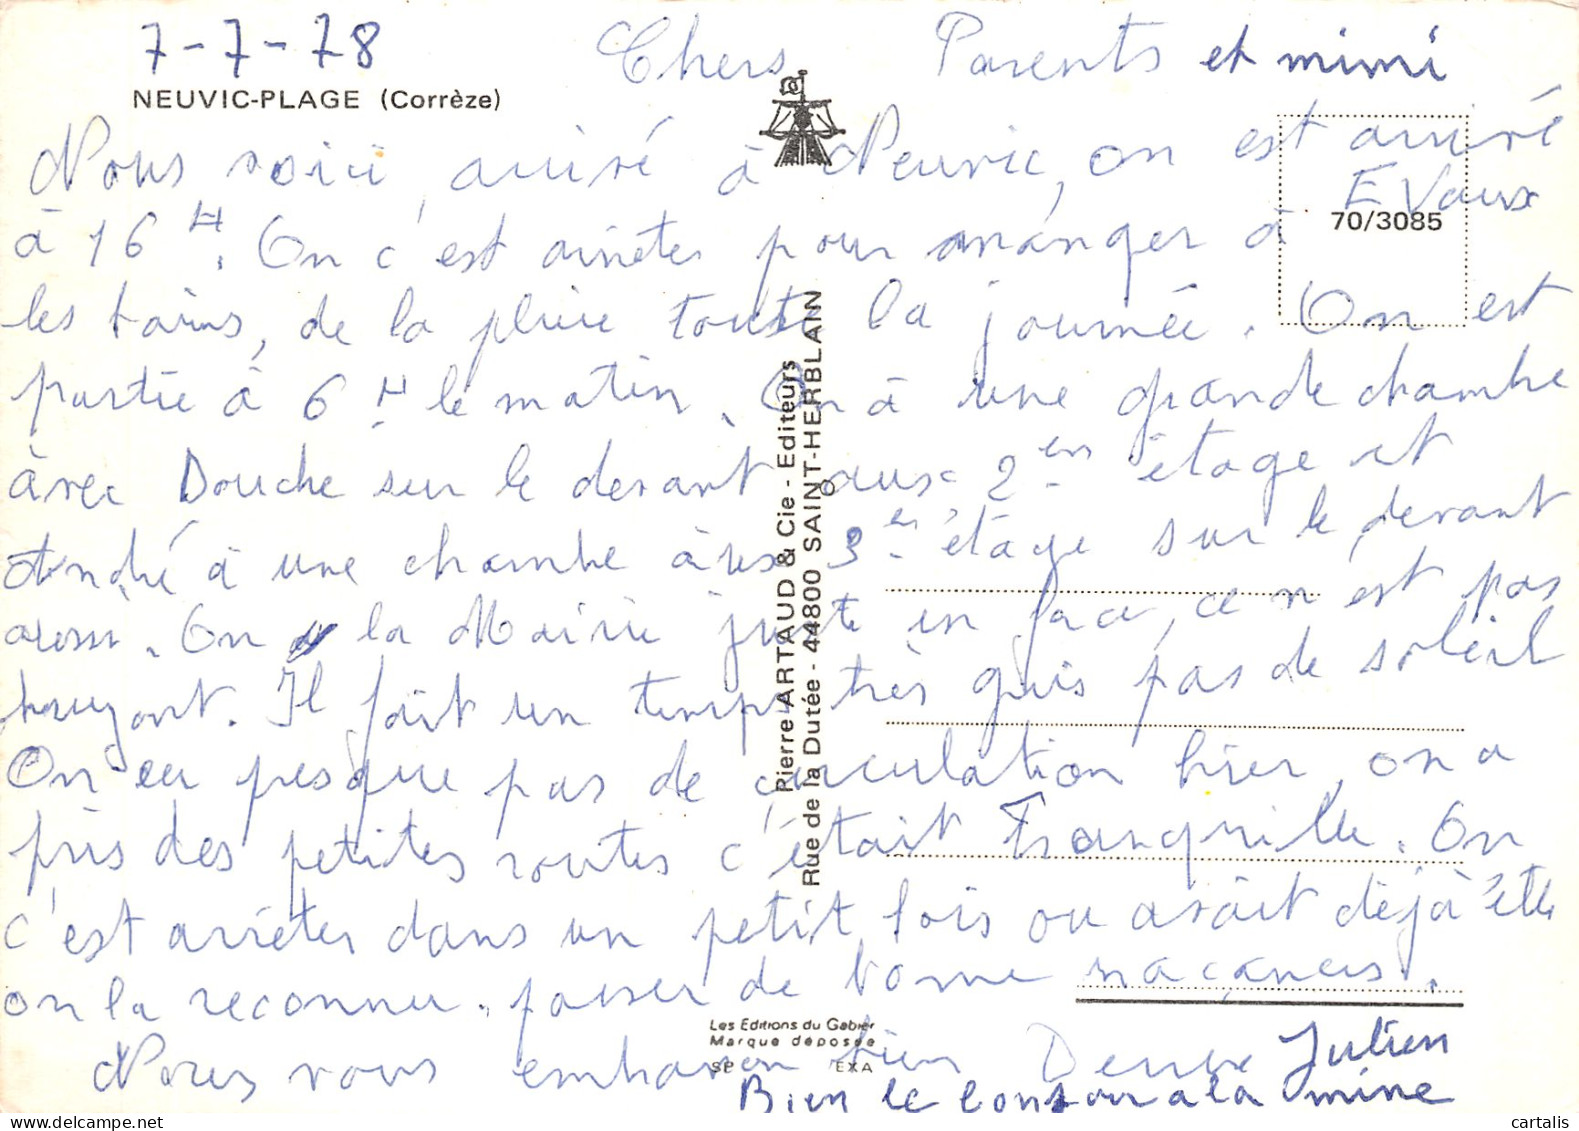 7-7-78
Chers Parents et mimi
NEUVIC-PLAGE (Corrèze)
Nous voici arrivé à Neuvic, on est arrivé
à 16 H. On c'est arrêter pour manger à EVaux
70/3085
les bains, de la pluie toute la journée. On est
partie à 6 H le matin. On à une grande chambre
àvec Douche sur le devant aux 2 en étage et
André à une chambre àux 3 en étage sur le devant
aussi. On la Mairie juste en face, ce n'est pas
bruyant. Il fait un temps très gris pas de soleil
On eu presque pas de circulation hier, on a
pris des petites routes c'était Tranquille. On
c'est arrêter dans un petit bois ou avait déjà étée
on la reconnu. passer de bonne vacances.
Nous vous embrasson bien Denise Julien
Bien le bonsour a la mine
Pierre ARTAUD & Cie - Editeurs
Rue de la Dutée - 44800 SAINT-HERBLAIN
Les Editions du Gabier
Marque déposée
SP EXA
cartalis